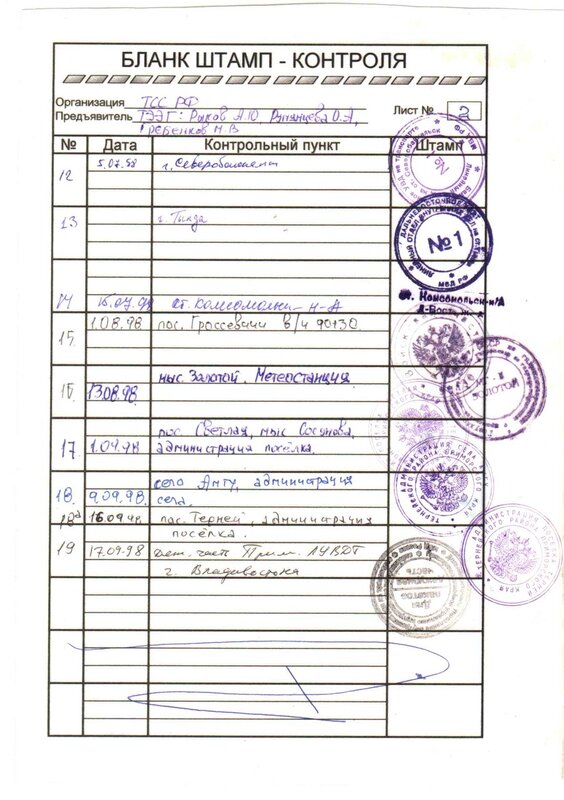 БЛАНК ШТАМП - КОНТРОЛЯ
Организация ТСС РФ
Предъявитель ТЭЭГ: Рыков А.Ю, Румянцева О.А, Лист № 2
Гребенков М.В
№ Дата Контрольный пункт Штамп
12 5.07.98 г. Северобайкальск
13 г. Тында
№1
МВД РФ
ст. Комсомольск-н/А
Д-Вост. ж-д
14 16.07.98 ст. Комсомольск-н-А
15 1.08.98 пос. Гроссевичи в/ч
16 13.08.98 мыс Золотой. Метеостанция
ЗОЛОТОЙ
17. 1.09.98 пос Светлая, мыс Сосунова,
администрация посёлка.
18. 9.09.98. село Амгу, администрация
села.
18а 16.09.98 пос. Терней, администрация
посёлка.
19 17.09.98 Прим. ЛУВДТ
г. Владивостока
Для
пакетов